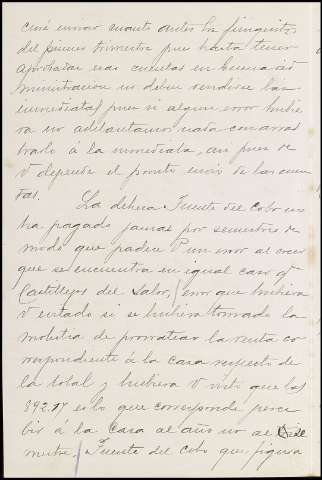 ciré enviar cuanto antes los finiquitos
del primer trimestre pues hasta tener
aprobadas esas cuentas en buena ad
ministracion no deben rendirse las
inmediatas, pues si algun error hubie
ra no adelantamos nada con arras
trarlo á la inmediata, asi pues de
V depende el pronto envio de las cuen
tas. La dehesa Fuente del Cobo no
ha pagado jamas por semestres de
modo que padece V un error al creer
que se encuentra en igual caso qe
Castillejos del Salor, error que hubiera
V evitado si se hubiera tomado la
molestia de prorratear la renta co
rrespondiente á la casa respecto de
la total y hubiera V visto que las
892.17 es lo que corresponde perci
bir á la Casa al año no al
mestre. Fuente del Cobo que figura